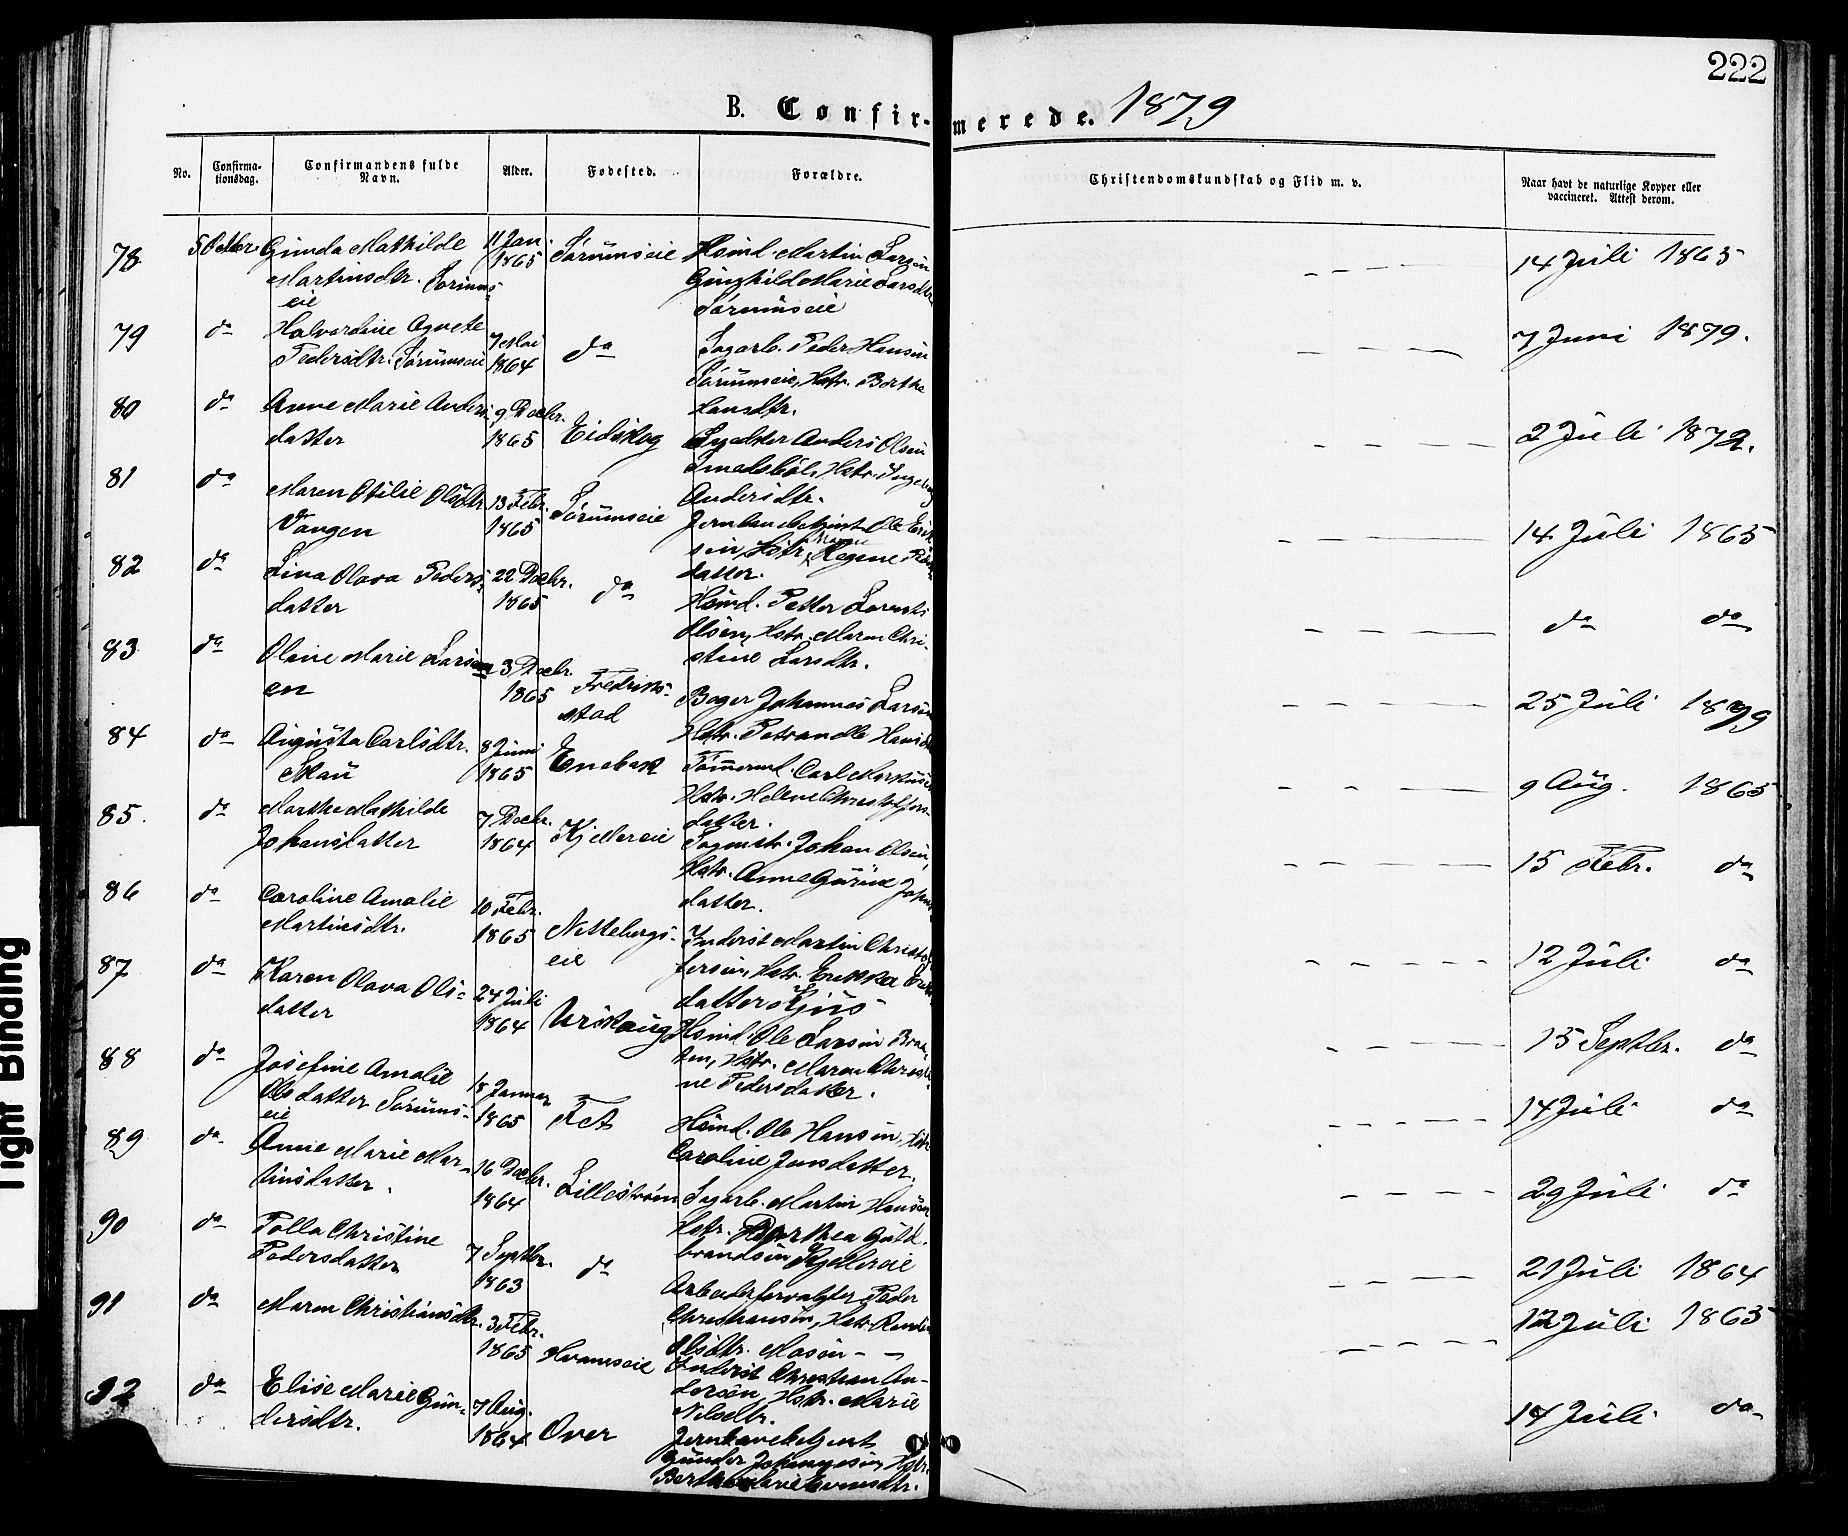 222
B. Confirmerede. 1879
No.
Confirma-
tionsdag.
Confirmandens fulde
Navn.
Alder.
Fødested.
Forældre.
Christendomskundskab og Flid m. v.
Naar havt de naturlige Kopper eller
vaccineret. Attest derom.
78 5 Octbr Gunda Mathilde
Martinsdtr. Sørums-
eie
11 Jan.
1865
Sørumseie
Hsmd. Martin Larsen
Marie Larsdtr
Sørumseie
14 Juli 1865
79 do Halvardine Agnete
Pedersdtr. Sørumseie
7 Mai
1864
do
Sagarb. Peder Hansen
Sørumseie, Hstr. Berthe
Hansdtr.
7 Juni 1879.
80 do Anne Marie Anders
datter
9 Decbr.
1865
Eidskog
Anders Olsen
Hstr. Ingeborg
Andersdtr.
2 Juli 1872.
81 do Maren Otilie Olsdtr
Vangen
13 Febr.
1865
Sørumseie
Ole Erik
sen, Hstr. Maren Regine
datter.
14 Juli 1865
82 do Lina Olava Peders-
datter
22 Decbr.
1865
do
Hsmd. Petter
Olsen, Hstr. Maren Chri-
stine Larsdtr.
do do
83 do Oline Marie Lars
en
3 Decbr.
1865
Fredriks-
stad
Bager Johannes Larsen
Hstr. Hansd
25 Juli 1879
84 do Augusta Carlsdtr.
Skau
8 Juni
1865
Enebak
Tømmermd. Carl Markusen
Hstr. Helene Christoffers-
datter.
9 Aug. 1865
85. do Marthe Mathilde
Johansdatter
7 Decbr.
1864
Kjellereie
Sagmstr. Johan Olsen,
Hstr. Anne Gurine
datter.
15 Febr. do
86 do Caroline Amalie
Martinsdtr.
10 Febr.
1865
Nittebergs-
eie
Inderst Martin Christof
fersen, Hstr. Erikka
datter Kjus
12 Juli do
87 do Karen Olava Ols-
datter
24 Juli
1864
Urskoug
Hsmd. Ole Larsen Braa-
ten, Hstr. Maren Christi
ne Pedersdatter.
15 Septbr. do
88 do Josefine Amalie
Olsdatter Sørums-
eie
18 Januar
1865
Fet
Hsmd. Ole Hansen, Hstr
Caroline Jensdatter.
14 Juli do
89 do Anne Marie Mar-
tinsdatter.
16 Decbr.
1864
Lillestrøm
Sagarb. Martin Hansen
Hstr. Guld-
brandsen Kjellereie
29 Juli do
90 do Polla Christine
Pedersdatter
7 Septbr.
1863
do
Arbeiderforvalgter Peder
Christiansen, Hstr. Randi
Olsdtr. Mosen
21 Juli 1864
91 do Maren Christiansdtr.
3 Febr.
1865
Hvamseie
Inderst Christian An-
dersen, Hstr. Marie
Nilsdtr.
12 Juli 1865
92 do Elise Marie Gun-
dersdtr.
7 Aug.
1864
Over
Gunder Johannesen, Hstr.
Berthe Marie Evensdtr.
14 Juli do
Tight Binding